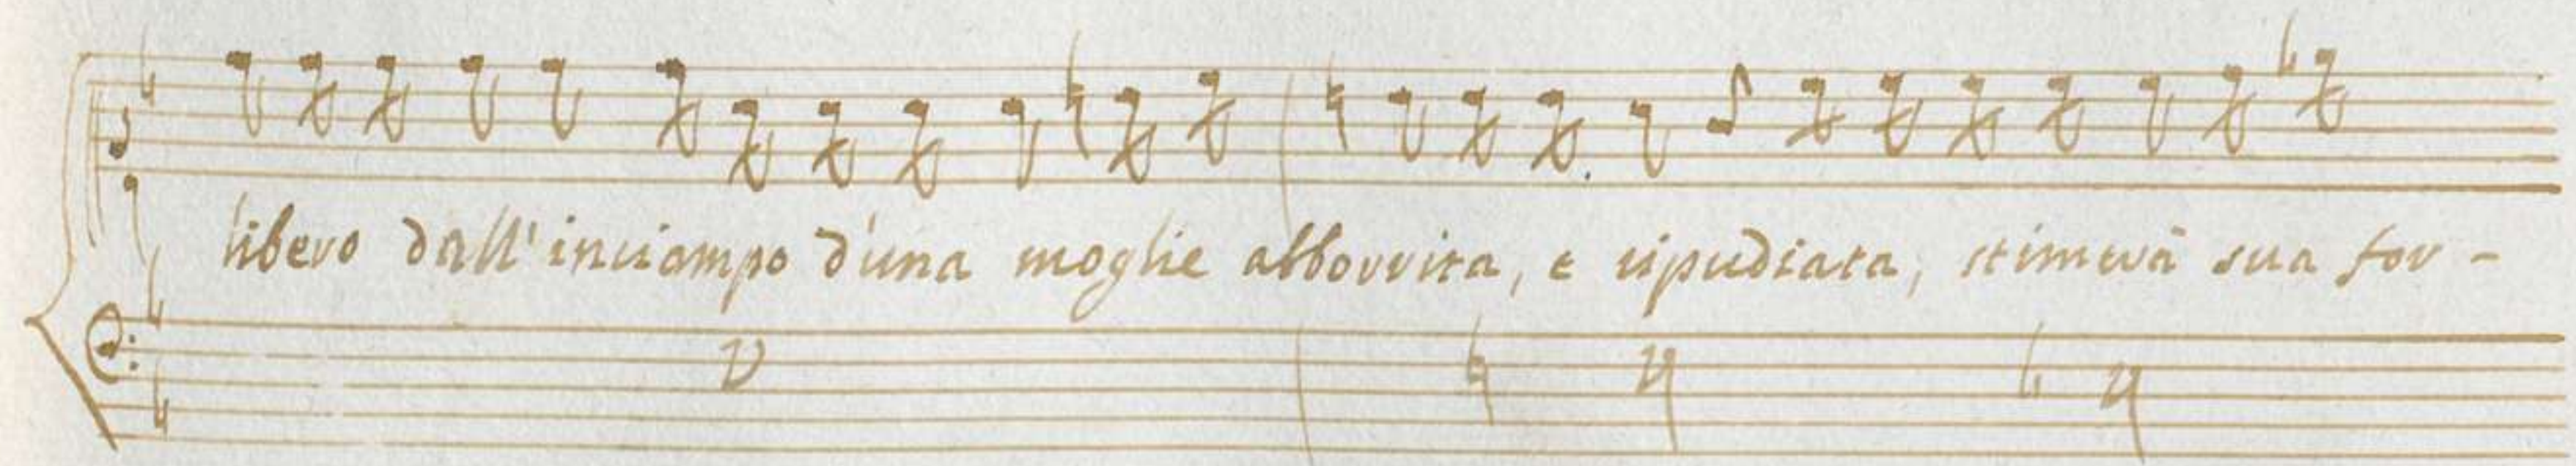 libero dall'inciampo d'una moglie abborrita, e ripudiata, stimerà sua for -